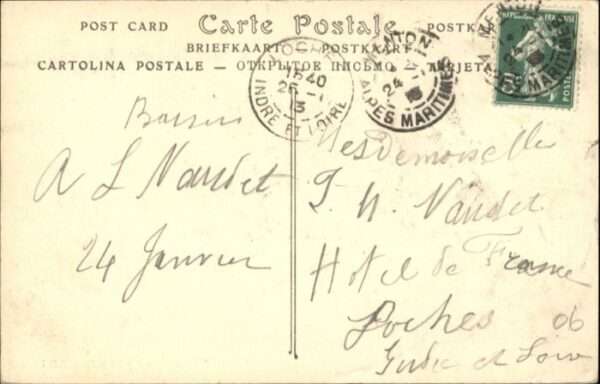 POST CARD Carte Postale POSTKA
BRIEFKAART POSTKAART
CARTOLINA POSTALE — ОТКРЫТОЕ ПИСЬМО — TARJETA
LOCHES
18 40
26 - 1
13
INDRE ET LOIRE
MENTON
24 - 1
13
ALPES MARITIMES
MENTON
24
ALPES MARITIMES
RÉPUBLIQUE FRANÇAISE
5c
POSTES
Baisers
A L Naudet
24 Janvier
Mesdemoiselle
J. N. Naudet
Hotel de France
Loches
Indre et Loire